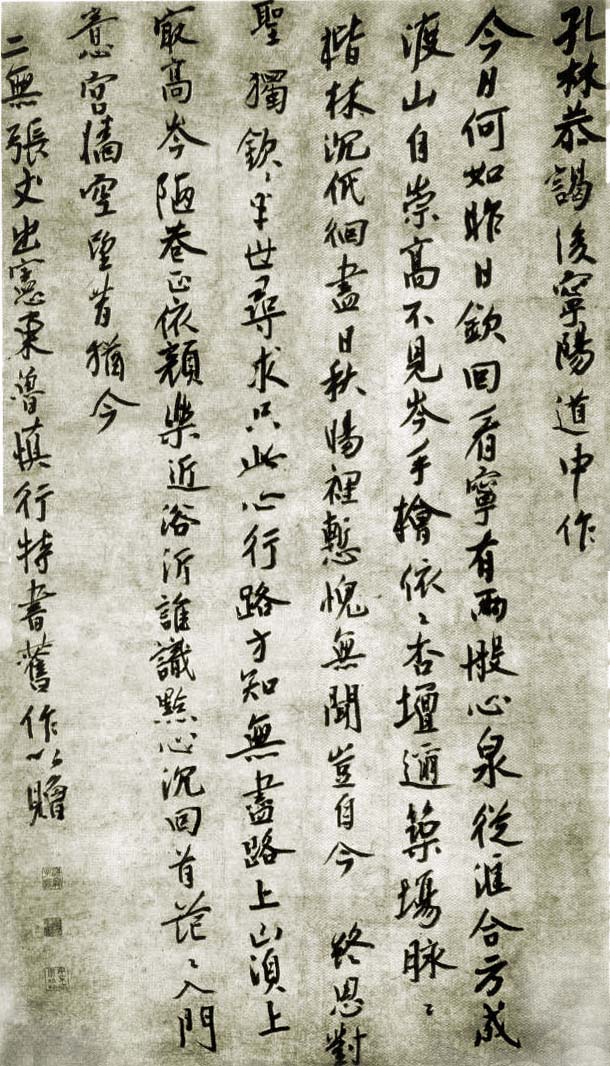 孔林恭謁後寧陽道中作
今日何如昨日欽回看寧有兩般心泉從滙合方成
渡山自崇高不見岑手檜依〻杏壇邇築場脉〻
楷林沉低徊盡日秋暘裡慙愧無聞豈自今 終思對
聖獨欽〻半世尋求只此心行路方知無盡路上山湏上
最高岑陋巷正依顏樂近浴沂誰識點心沉回首茫〻入門
意宮墻空望昔猶今
二無張丈出憲東魯慎行特書舊作以贈